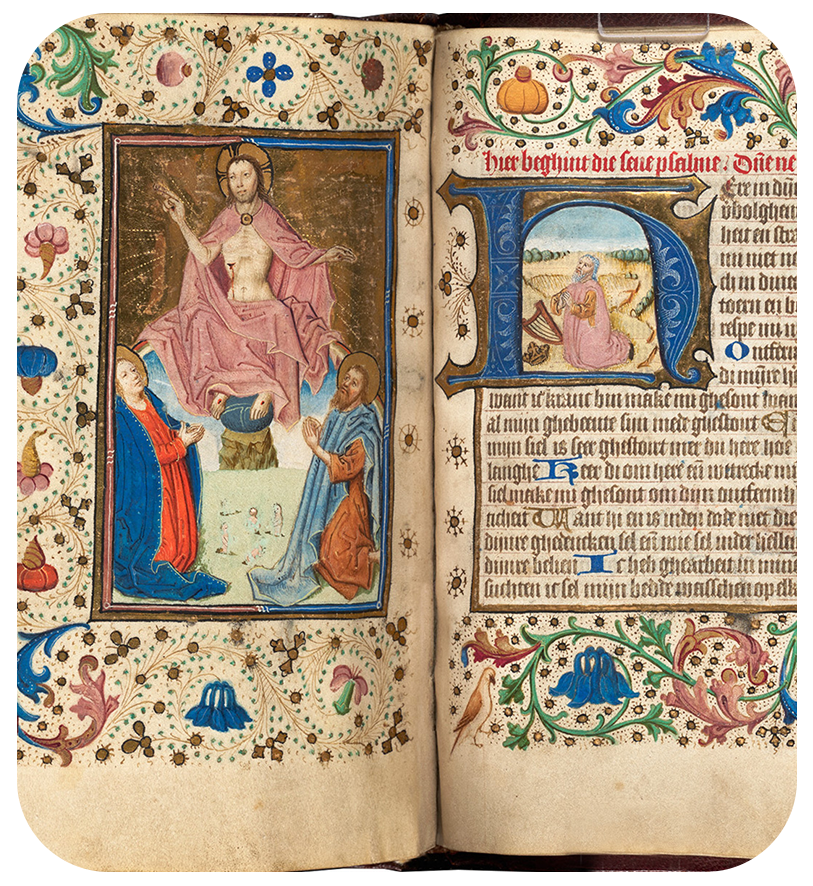 hier beghint die seue psalme. Dñe ne
Here in dijn
v̈bolghen
heit en stra
mi niet no
ch in dine
toern en b
respe mi n
Ontferm
di mijre hē
want ic kranc bin make mi ghesont
al mijn ghebeente sijn mede ghestort
mijn siel is seer ghestoirt mer du here hoe
langhe Keer di om here eñ wtrecke mi
siel make mi ghesont om dijn ontferm
ticheit Want hi en is inder doot niet die
dijnre ghedencken sel eñ wie sel inder hellen
dijnre belien Ic heb ghearbeit in min
suchten ic sel mijn bedde wasschen op elk